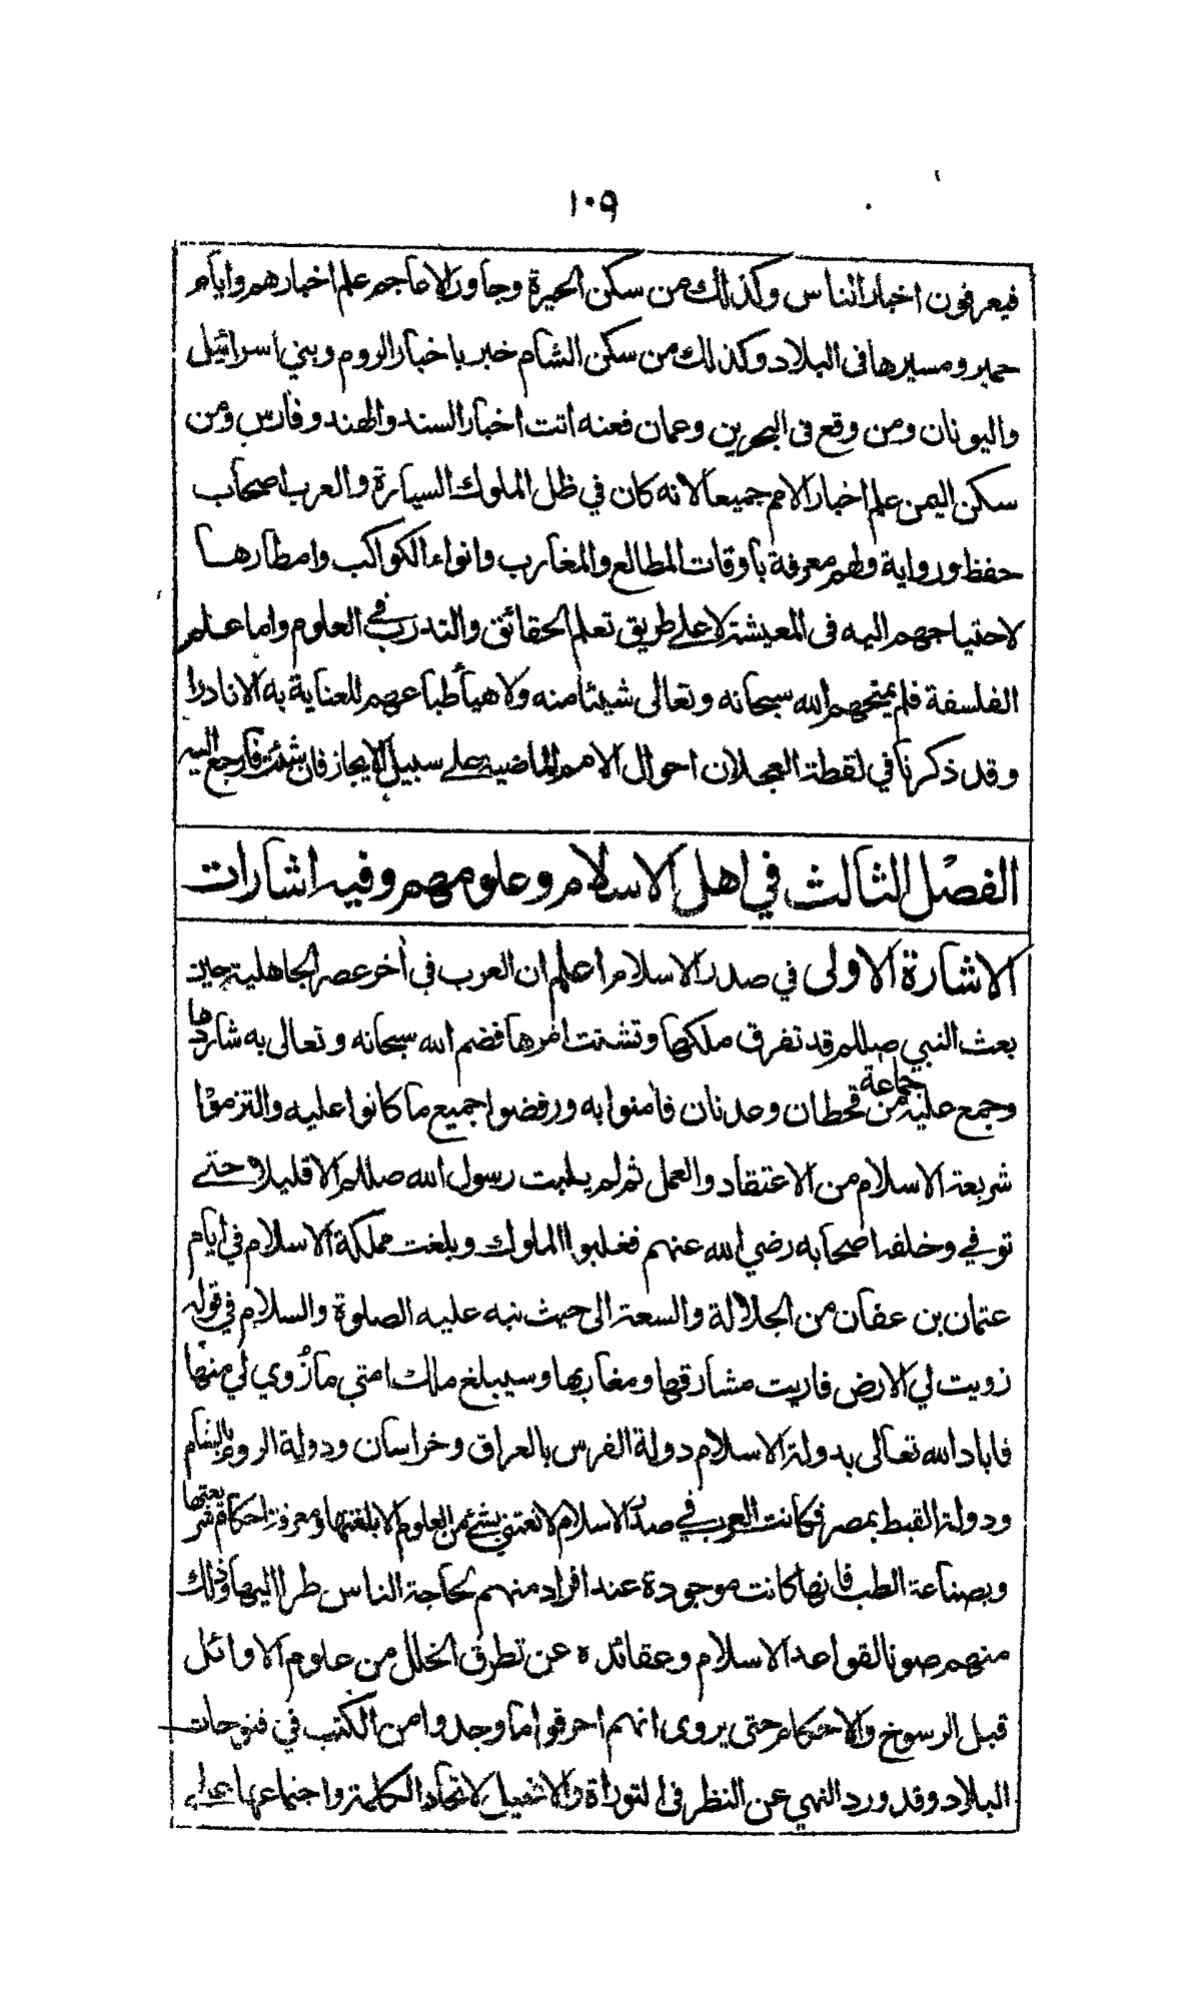 ١٠٩
فيعرفون اخبار الناس وكذلك من سكن الحيرة وجاور الاعاجم علم اخبارهم وايام
حمير ومسيرها فى البلاد وكذلك من سكن الشام خبر باخبار الروم وبني اسرائيل
واليونان ومن وقع فى البحرين وعمان فعنه اتت اخبار السند والهند وفارس ومن
سكن اليمن علم اخبار الامم جميعا لانه كان في ظل الملوك السيارة والعرب اصحاب
حفظ ورواية ولهم معرفة باوقات المطالع والمغارب وانواء الكواكب وامطارها
لاحتياجهم اليه فى المعيشة لا على طريق تعلم الحقائق والتدرب في العلوم واما علم
الفلسفة فلم يمنحهم الله سبحانه وتعالى شيئا منه ولا هيأ طباعهم للعناية به الا نادرا
وقد ذكرنا في لقطة العجلان احوال الامم الماضية على سبيل الايجاز فان شئت فارجع اليه
الفصل الثالث في اهل الاسلام وعلومهم وفيه اشارات
الاشارة الاولى في صدر الاسلام اعلم ان العرب في أخر عصر الجاهلية حين
بعث النبي صللم قد تفرق ملكها وتشتت امرها فضم الله سبحانه وتعالى به شاردها
وجمع عليه جماعة من قحطان وعدنان فأمنوا به ورفضوا جميع ما كانوا عليه والتزموا
شريعة الاسلام من الاعتقاد والعمل ثم لم يلبث رسول الله صللم الا قليلا حتى
توفي وخلفه اصحابه رضي الله عنهم فغلبوا الملوك وبلغت مملكة الاسلام في ايام
عثمان بن عفان من الجلالة والسعة الى حيث نبه عليه الصلوة والسلام في قوله
زويت لي الارض فاريت مشارقها ومغاربها وسيبلغ ملك امتي ما زُوي لي منها
فاباد الله تعالى بدولة الاسلام دولة الفرس بالعراق وخراسان ودولة الروم بالشام
ودولة القبط بمصر فكانت العرب في صدر الاسلام لا تعتني بشئ من العلوم الا بلغتها ومعرفة احكام شريعتها
وبصناعة الطب فانها كانت موجودة عند افراد منهم لحاجة الناس طرا اليها وذلك
منهم صونا لقواعد الاسلام وعقائده عن تطرق الخلل من علوم الاوائل
قبل الرسوخ والاحكام حتى يروى انهم احرقوا ما وجدوا من الكتب في فتوحات
البلاد وقد ورد النهي عن النظر فى التوراة والانجيل لاتحاد الكلمة واجتماعها على